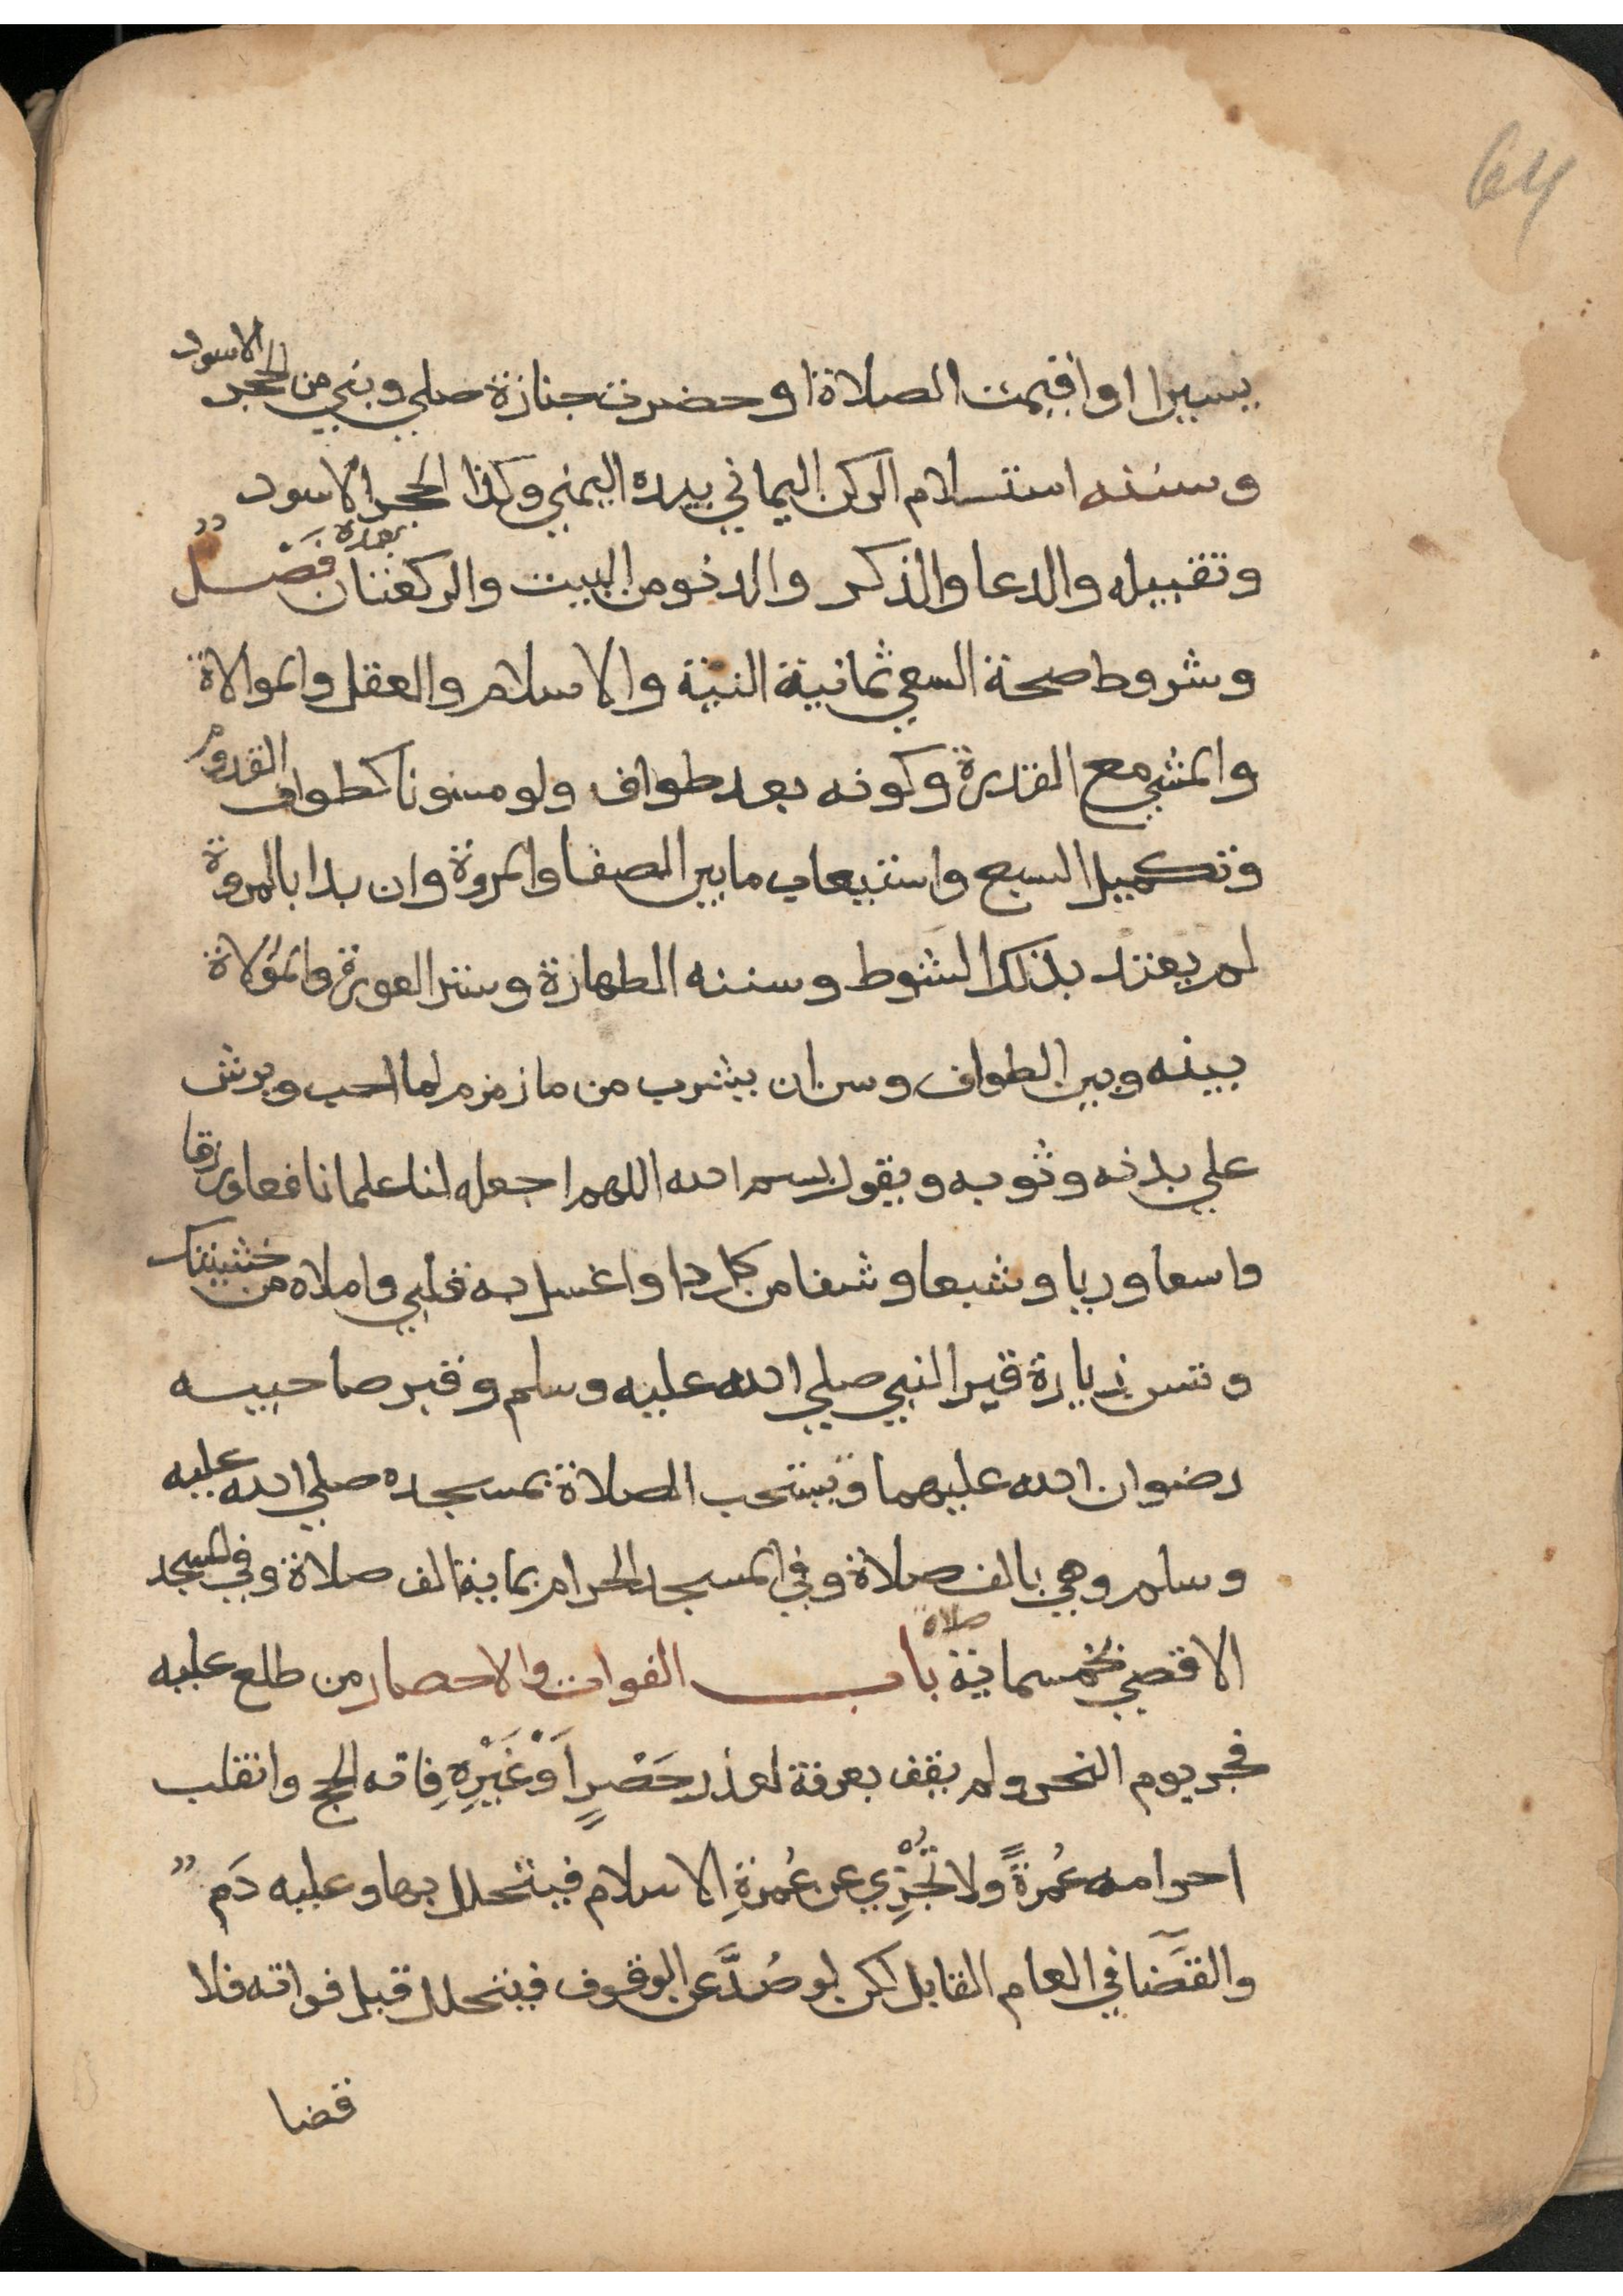 64
يسيرا او اقيمت الصلاة او حضرت جنازة صلي وبني من الحجر الاسود
وسننه استلام الركن اليماني بيده اليمني وكذا الحجر الاسود
وتقبيله والدعا والذكر والدنو من البيت والركعتان بعده فَصْل
وشروط صحة السعي ثمانية النية والاسلام والعقل والموالاة
والمشي مع القدرة وكونه بعد طواف ولو مسنونا كطواف القدوم
وتكميل السبع واستيعاب ما بين الصفا والمروة وان بدا بالمروة
لم يعتد بذلك الشوط وسننه الطهارة وستر العورة والمؤلاة
بينه وبين الطواف وسن ان يشرب من ما زمزم لما احب ويرش
علي بدنه وثوبه ويقول بسم الله اللهم اجعله لنا علما نافعا ورزقا
واسعا وريا وشبعا وشفا من كل دا واغسل به قلبي واملاه من خشيتك
وتسن زيارة قبر النبي صلي الله عليه وسلم وقبر صاحبيه
رضوان الله عليهما وتستحب الصلاة بمسجده صلي الله عليه
وسلم وهي بالف صلاة وفي المسجد الحرام بماية الف صلاة وفي المسجد
الاقصي بخمسماية صلاة باب الفوات والاحصار من طلع عليه
فجر يوم النحر ولم يقف بعرفة لعذر حَصْرٍ اَوْ غَيْرِهِ فاته الحج وانقلب
احرامه عُمرةً ولا تُجْزِي عن عُمرةِ الاسلام فيتحلل بها وعليه دَم
والقَضَا في العام القابل لكن لو صُدَّ عن الوقوف فيتحلل قبل فواته فلا
قضا